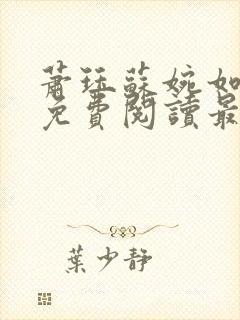 蕭珏蘇婉如
免費閱讀最
葉少靜